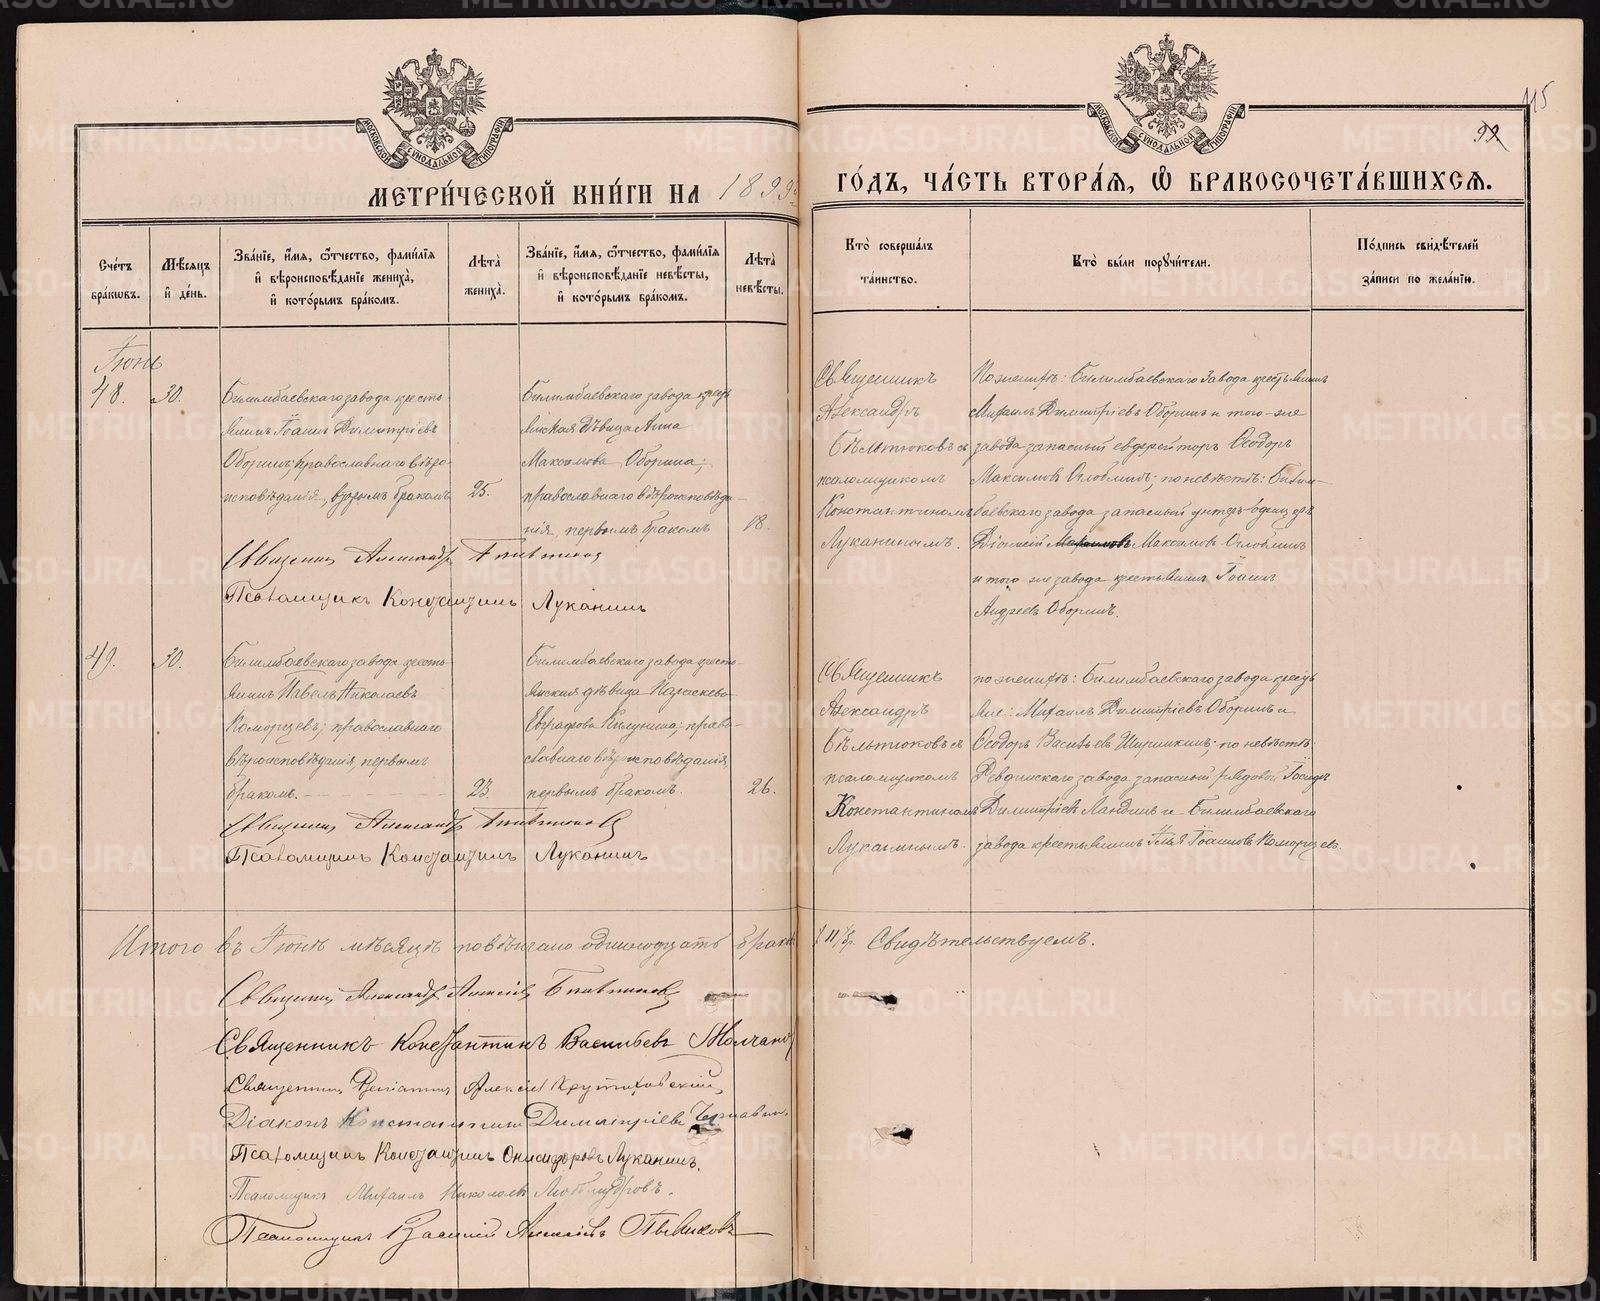 МЕТРИ́ЧЕСКОЙ КНИ́ГИ НА 1899
ГО́ДЪ, ЧА́СТЬ ВТОРА́Я, Ѿ БРАКОСОЧЕТА́ВШИХСЯ.
115
92
Сче́тъ бра́кѡвъ.
Мѣ́сяцъ и̂ де́нь.
Зва́нїе, и́мя, ѻ́тчество, фами́лїя и̂ вѣроисповѣ́данїе жениха̀, и̂ кото́рымъ бра́комъ.
Лѣ́та жениха̀.
Зва́нїе, и́мя, ѻ́тчество, фами́лїя и̂ вѣроисповѣ́данїе невѣ́сты, и̂ кото́рымъ бра́комъ.
Лѣ́та невѣ́сты.
Кто̀ соверша́лъ та́инство.
Кто̀ бы́ли порꙋчи́тели.
По́дпись свидѣ́телей за́писи по жела́нїю.
Іюнь
48.
30.
Билимбаевскаго завода кресть-
янинъ Іоаннъ Димитріевъ
Оборинъ, православнаго вѣро-
исповѣданія, вторымъ бракомъ
25.
Билимбаевскаго завода кресть
янская дѣвица Анна
Максимова Оборина;
православнаго вѣроисповѣда-
нія, первымъ бракомъ
18.
Священникъ
Александръ
Бѣльтюковъ съ
псаломщикомъ
Константиномъ
Луканинымъ.
По женихѣ: Билимбаевскаго завода крестьянинъ
Михаилъ Димитріевъ Оборинъ и того-же
завода запасный ефрейторъ Ѳеодоръ
Максимовъ Оглоблинъ; по невѣстѣ: Билим-
баевскаго завода запасный унтеръ-офицеръ
Діонисій Максимовъ Оглоблинъ
и того же завода крестьянинъ Іоаннъ
Андреевъ Оборинъ.
Священникъ Александръ Бѣльтюковъ
Псаломщикъ Константинъ Луканинъ
49.
30.
Билимбаевскаго завода кресть-
янинъ Павелъ Николаевъ
Коморцевъ; православнаго
вѣроисповѣданія, первымъ
бракомъ.
23.
Билимбаевскаго завода кресть-
янская дѣвица Параскева
Евграфова Килунина; право-
славнаго вѣроисповѣданія,
первымъ бракомъ.
26.
Священникъ
Александръ
Бѣльтюковъ съ
псаломщикомъ
Константиномъ
Луканинымъ.
по женихѣ: Билимбаевскаго завода кресть
яне: Михаилъ Димитріевъ Оборинъ и
Ѳеодоръ Васильевъ Ширинкинъ; по невѣстѣ:
Ревдинскаго завода запасный рядовой
Димитріевъ и Билимбаевскаго
завода крестьянинъ Илья Іоанновъ Коморцевъ.
Священникъ Александръ Бѣльтюковъ
Псаломщикъ Константинъ Луканинъ
Итого въ Іюнѣ мѣсяцѣ повѣнчано одиннадцать браковъ /11/ бр. Свидѣтельствуемъ.
Священникъ Александръ Алексіевъ Бѣльтюковъ
Священникъ Константинъ Васильевъ Молчанов
Священникъ Веніаминъ Алексіевъ
Діаконъ Константинъ Димитріевъ
Псаломщикъ Константинъ Онисифоровъ Луканинъ.
Псаломщикъ Михаилъ Николаевъ Любомудровъ.
Псаломщикъ Василій Алексіевъ
METRIKI.GASO-URAL.RU